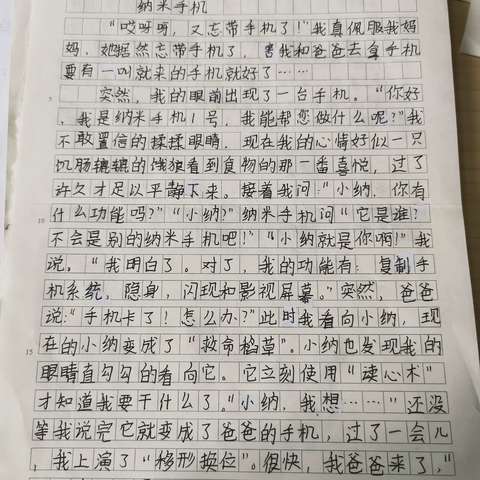 纳米手机
“哎呀呀，又忘带手机了！”我真佩服我妈
妈，她居然忘带手机了，害我和爸爸去拿手机
要有一叫就来的手机就好了……
突然，我的眼前出现了一台手机。“你好
，我是纳米手机1号，我能帮您做什么呢？”我
不敢置信的揉揉眼睛，现在我的心情好似一只
饥肠辘辘的饿狼看到食物的那一番喜悦，过了
5
许久才足以平静下来。接着我问：“小纳，你有
什么功能吗？”“小纳？”纳米手机问“它是谁？
10
不会是别的纳米手机吧！”“小纳就是你啊！”我
说。“我明白了。对了，我的功能有：复制手
机系统，隐身，闪现和影视屏幕。”突然，爸爸
说：“手机卡了！怎么办？”此时我看向小纳，现
在的小纳变成了“救命稻草”。小纳也发现我的
15
眼睛直勾勾的看向它。它立刻使用“读心术”
才知道我要干什么了。“小纳，我想……”还没
等我说完它就变成了爸爸的手机，过了一会儿
，我上演了“移形换位”。很快，我爸爸来了，“